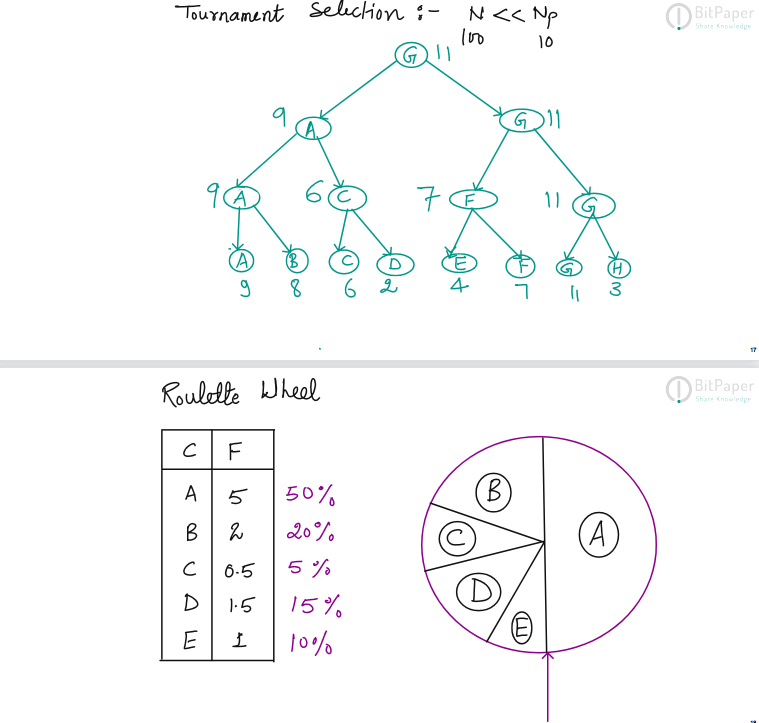 Tournament Selection :- N << Np
100 10
BitPaper
Share Knowledge
G 11
9 A G 11
9 A 6 C 7 F 11 G
A B C D E F G H
9 8 6 2 4 7 11 3
17
Roulette Wheel
BitPaper
Share Knowledge
C F
A 5 50%
B 2 20%
C 0.5 5%
D 1.5 15%
E 1 10%
B
A
C
D
E